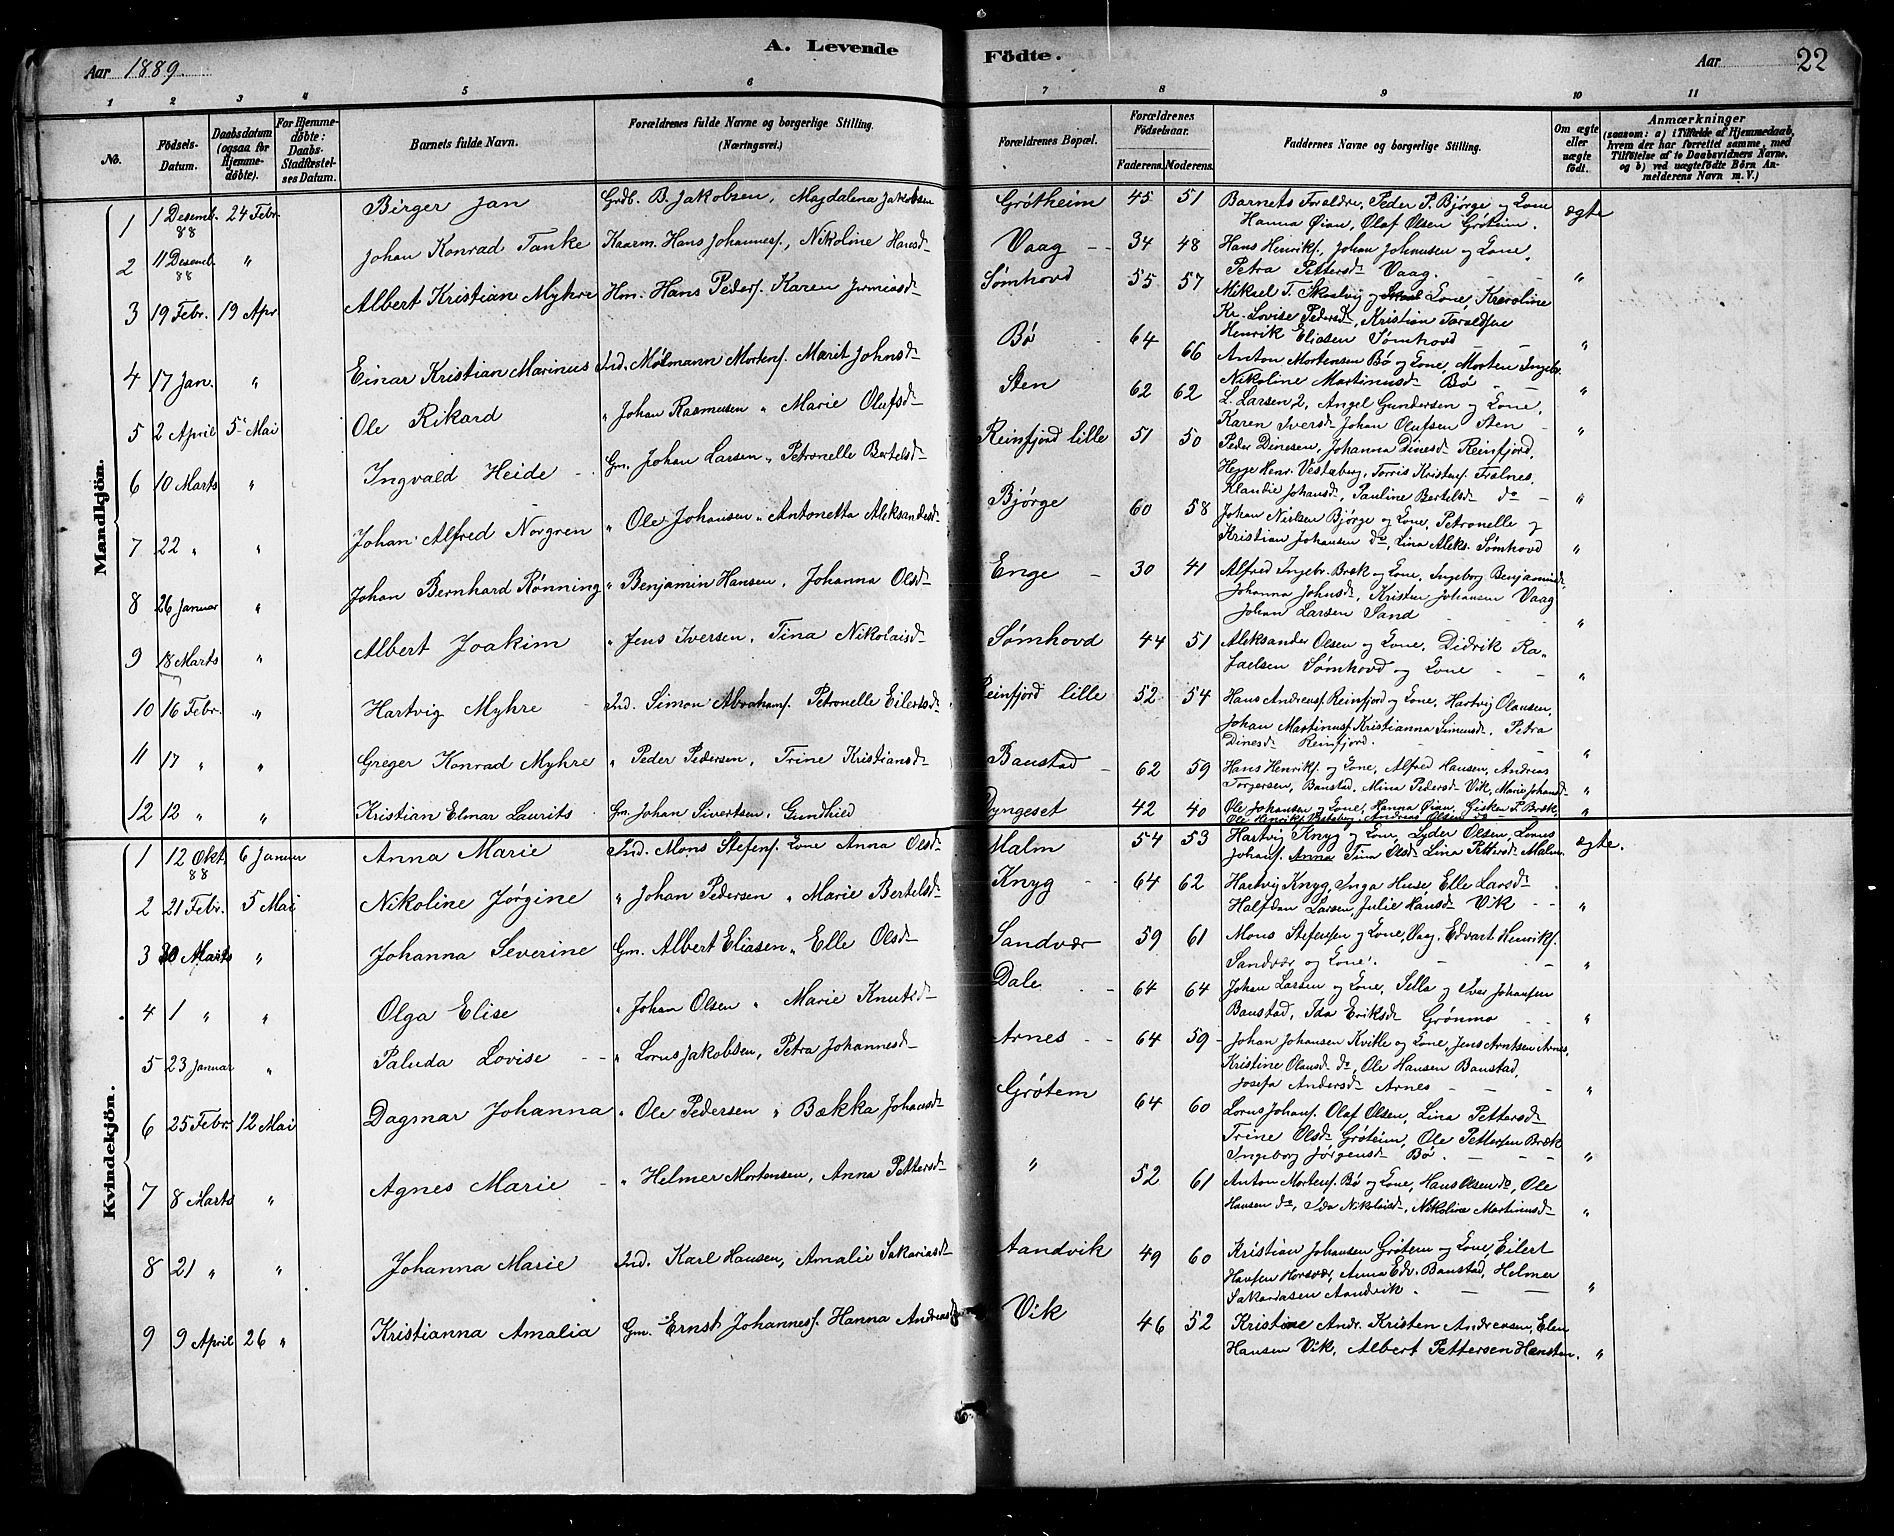 A. Levende Födte.
Aar 1889.
Aar 22
1 2 3 4 5 6 7 8 9 10 11
No.
Födsels-Datum.
Daabsdatum (ogsaa for Hjemmedöbte).
For Hjemmedöbte: Daabs-Stadfæstelses Datum.
Barnets fulde Navn.
Forældrenes fulde Navne og borgerlige Stilling. (Næringsvei.)
Forældrenes Bopæl.
Forældrenes Födselsaar.
Faderens. Moderens.
Faddernes Navne og borgerlige Stilling.
Om ægte eller uægte födt.
Anmærkninger
(saasom: a) i Tilfælde af Hjemmedaab, hvem der har forrettet samme, med Tilföielse af to Daabsvidners Navne, og b) ved uægtefödte Börn Anmelderens Navn m. V.)
Mandkjön.
1 1 Desemb. 88 24 Febr. Birger Jan Grdb. B. Jakobsen, Magdalena Jakobsen Grøtheim 45 51 Barnets Forældre, Peder P. Bjørge og Kone
Hanna Øian, Olaf Olsen Grøteim. ægte
2 11 Desemb. 88 " Johan Konrad Tanke Kaarm. Hans Johannesf., Nikoline Hansd. Vaag 34 48 Hans Henriksf., Johan Johansen og Kone,
Petra Pettersd. Vaag. "
3 19 Febr. 19 Apr Albert Kristian Myhre Hm. Hans Pedersf. Karen Jermiasd. Sømhovd 55 57 Mikael T. Skaalvig og Kone Karoline
Kr. Lovise Pedersd., Kristian Toraldsen
Henrik Eliasen Sømhovd "
4 17 Jan. " Einar Kristian Marinus Ind. Mølmann Mortensf. Marit Johnsd. Bø 64 66 Anton Mortensen Bø og Kone, Morten Ingebr.
Nikoline Martinusd. Bø "
5 2 April 5 Mai Ole Rikard " Johan Rasmusen " Marie Olufsd. Sten 62 62 L. Larsen 2, Angel Gundersen og Kone,
Karen Iversd. Johan Olufsen Sten "
6 10 Marts " Ingvald Heide Gm. Johan Larsen " Petronelle Bertelsd. Reinfjord lille 51 50 Peder Dinesen, Johanna Dinesd. Reinfjord,
Hegge Henr. Vestaberg, Torris Kristensf. Fjelnes,
Klaudie Johansd., Pauline Bertelsd. do "
7 22 " " Johan Alfred Norgren " Ole Johansen " Antonetta Aleksandersd. Bjørge 60 58 Johan Nielsen Bjørge og Kone, Petronelle og
Kristian Johansen do, Lina Aleks. Sømhovd "
8 26 Januar " Johan Bernhard Rønning " Benjamin Hansen, Johanna Olsd. Enge 30 41 Alfred Ingebr. Bræk og Kone, Ingeborg Benjamind.
Johanna Johnsd., Kristen Johansen Vaag
Johan Larsen Sand "
9 18 Marts " Albert Joakim " Jens Iversen, Tina Nikolaisd. Sømhovd 44 51 Aleksander Olsen og Kone, Didrik Ra-
faelsen Sømhovd og Kone "
10 16 Febr. " Hartvig Myhre Ind. Simon Abrahamsf. Petronelle Eilertsd. Reinfjord lille 52 54 Hans Andreasf. Reinfjord og Kone, Hartvig Olausen,
Johan Martinusf. Kristianna Simonsd. Petra
Dinesd. Reinfjord. "
11 17 " " Greger Konrad Myhre " Peder Pedersen, Trine Kristiansd. Baustad 62 59 Hans Henriksf. og Kone, Alfred Hansen, Andreas
Torgersen, Baustad, Mina Pedersd. Vik, Marie Johansd. "
12 12 " " Kristian Elmar Laurits Gm. Johan Sivertsen, Gundhild Dyngeset 42 40 Ole Johansen og Kone, Hanna Øian, Gisken P. Bræk,
Andreas Olsen do "
Kvindekjön.
1 12 Okt. 88 6 Januar Anna Marie Ind. Mons Stefensf. Kone Anna Olsd. Malm 54 53 Hartvig Knyg og Kone, Lyder Olsen, Lorns
Johansf. Anna Tina Olsd. Lina Pettersd. Malm. ægte.
2 21 Febr. 5 Mai Nikoline Jørgine " Johan Pedersen " Marie Bertelsd. Knyg 64 62 Hartvig Knyg, Inga Huse, Elle Larsd.
Halfdan Larsen, Julie Hansd. Vik "
3 30 Marts " Johanna Severine Gm. Albert Eliasen " Elle Olsd. Sandvær 59 61 Mons Stefensen og Kone, Vaag. Edvart Henriksf.
Sandvær og Kone. "
4 1 " " Olga Elise " Johan Olsen " Marie Knutsd. Dale 64 64 Johan Larsen og Kone, Sella og Iver Johansen
Baustad, Ida Eriksd. Grønmo "
5 23 Januar " Paluda Lovise " Lorns Jakobsen, Petra Johannesd. Arnes 64 59 Johan Johansen Kvitle og Kone, Jens Arntsen Arnes,
Kristine Olausd. do, Ole Hansen Baustad,
Josefa Andersd. Arnes "
6 25 Febr. 12 Mai Dagmar Johanna " Ole Pedersen " Bækka Johansd. Grøtem 64 60 Lorns Johansf. Olaf Olsen, Lina Pettersd.
Trine Olsd. Grøteim, Ole Pettersen Bræk
Ingeborg Jørgensd. Bø. "
7 8 Marts " Agnes Marie " Helmer Mortensen, Anna Pettersd. " 52 61 Anton Mortensf. Bø og Kone, Hans Olsen do, Ole
Hansen do, Ida Nikolaisd., Nikoline Martinusd. "
8 21 " " Johanna Marie Ind. Karl Hansen, Amalie Sakariasd. Aandvik 49 60 Kristian Johansen Grøtem og Kone, Eilert
Hansen Horsvær, Anna Edv. Baustad, Helmer
Sakariasen Aandvik. "
9 9 April 26 " Kristianna Amalia Gm. Ernst Johannesf. Hanna Andreasd. Vik 46 52 Kristine Andr. Kristen Andreasen, Elen
Hansen Vik, Albert Pettersen Hansten. "